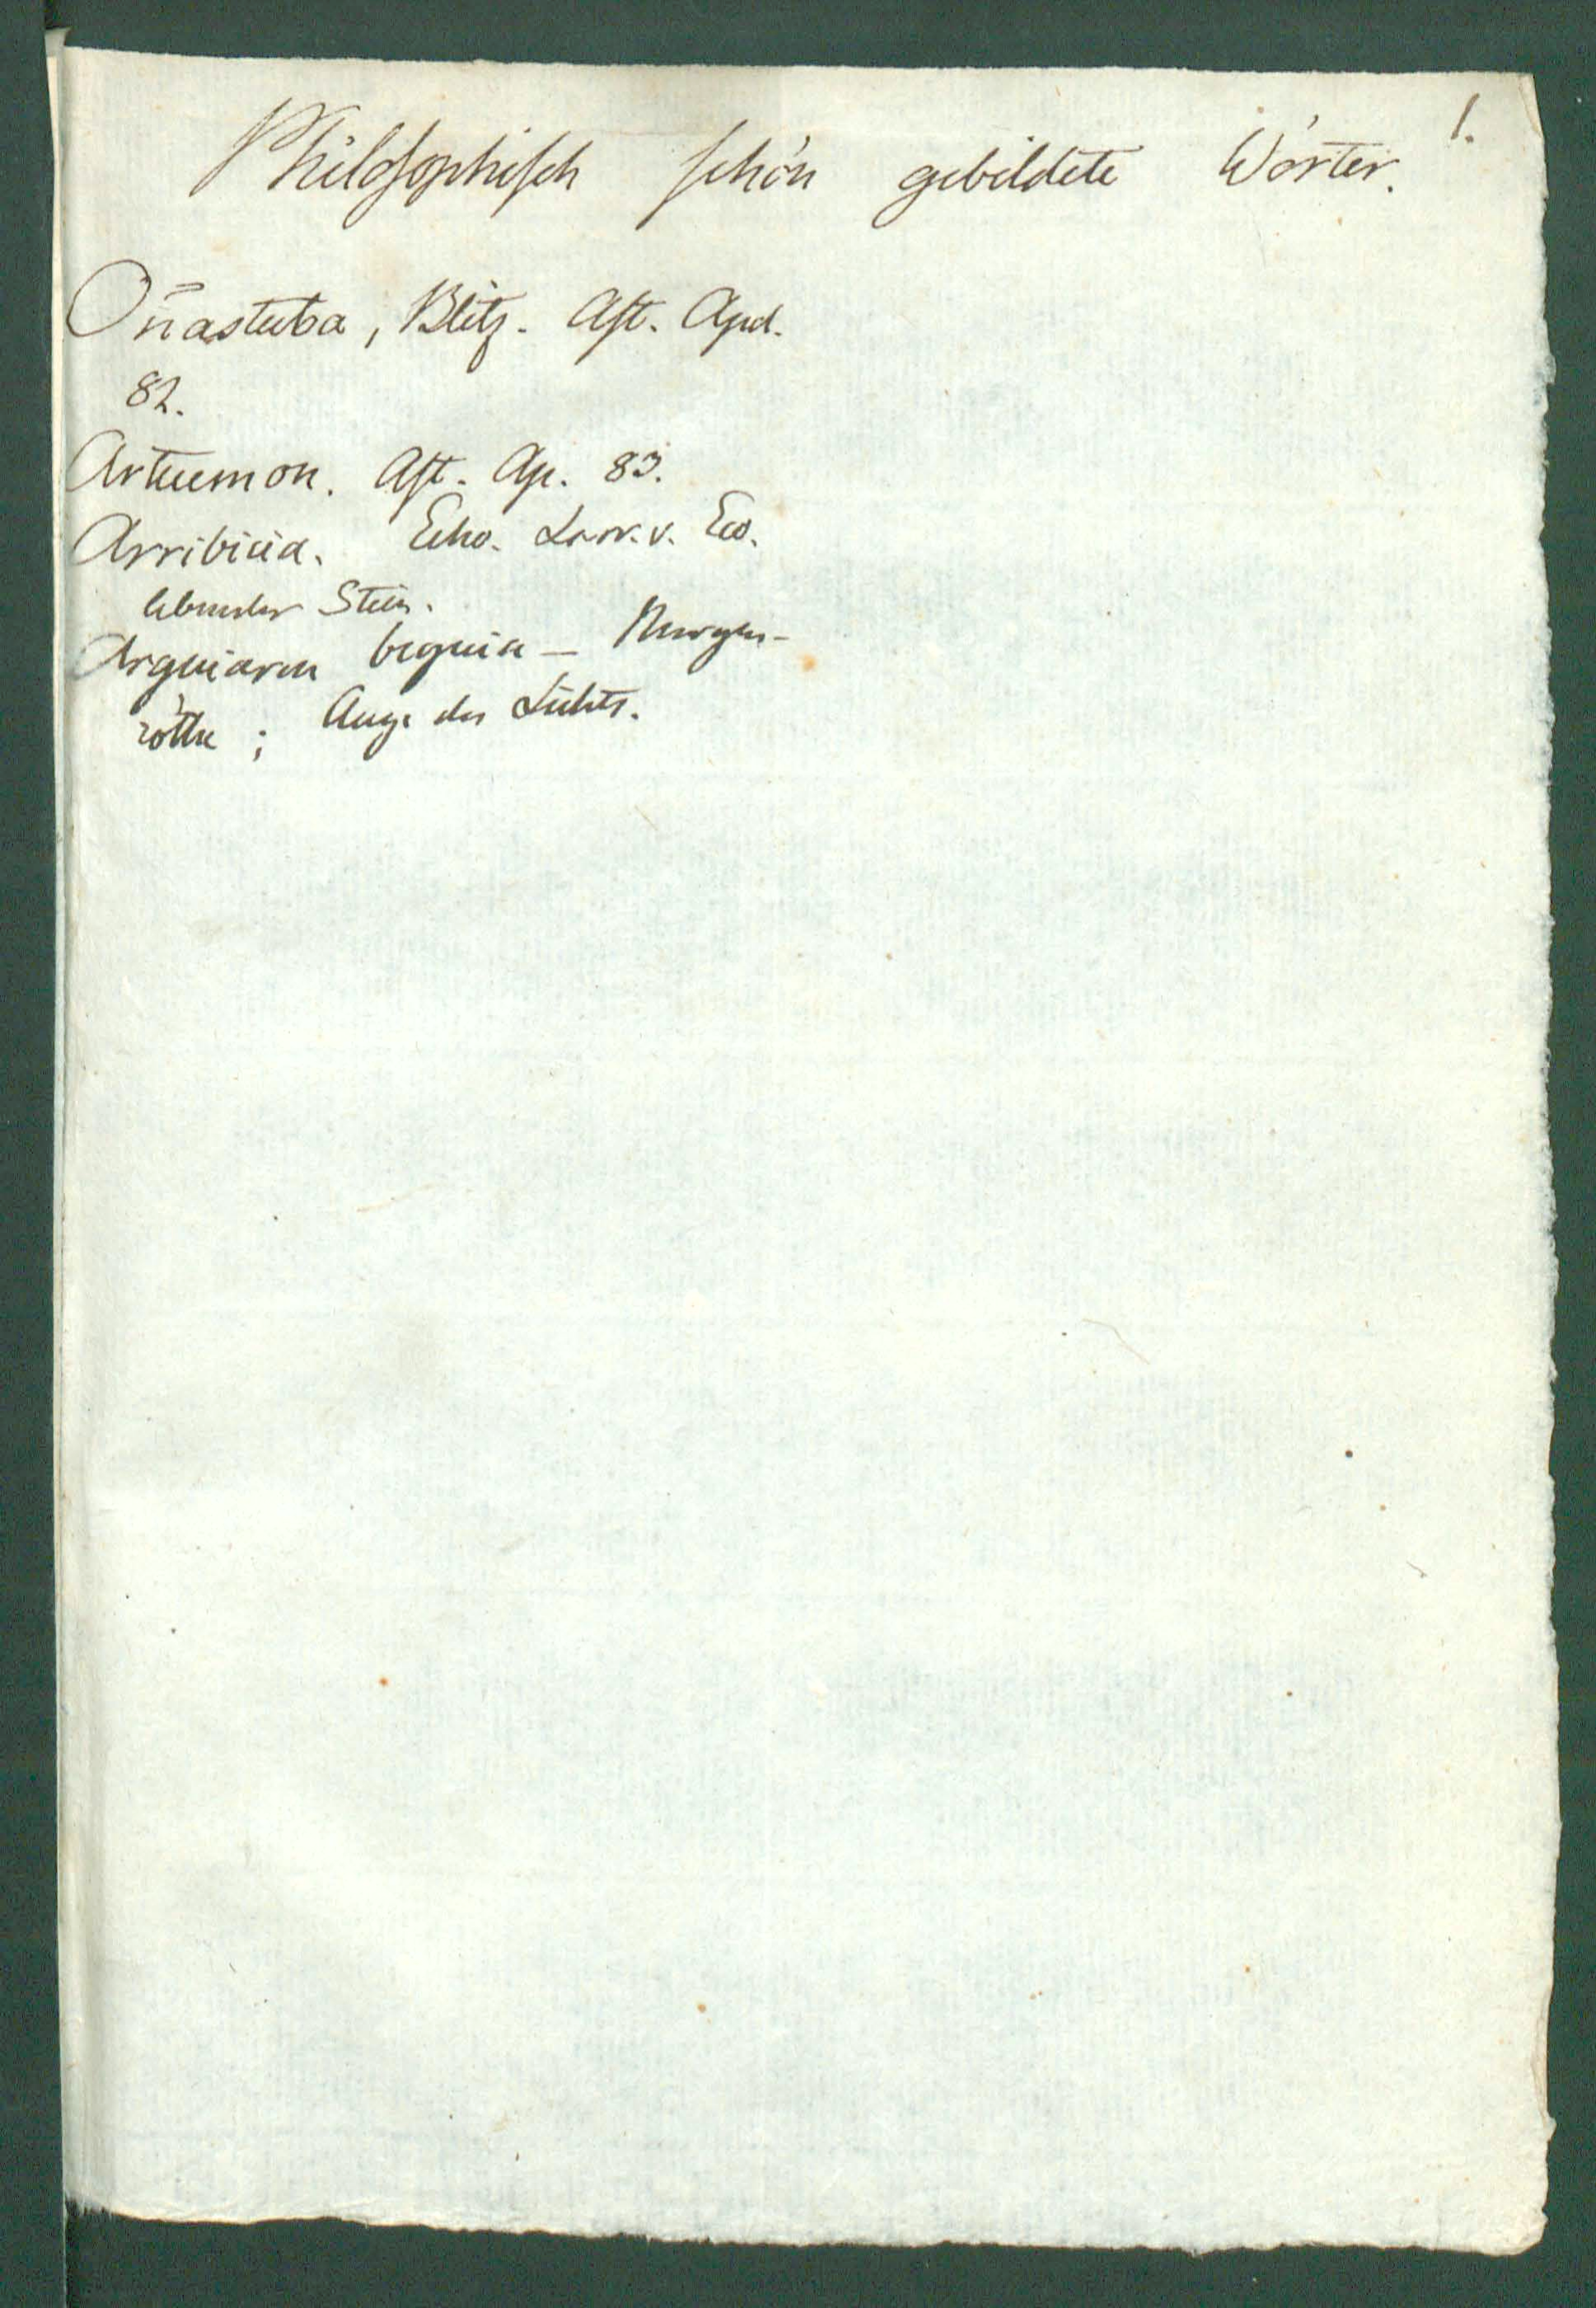 1.
Philosophisch schön gebildete Wörter.
Oñastuba, Blitz. Ast. Apol.
82.
Artuemon. Ast. Ap. 83.
Arribicia. Echo. Larr. v. Eco.
lebender Stein.
Arguiaren beguia – Morgen-
röthe; Auge des Lichts.